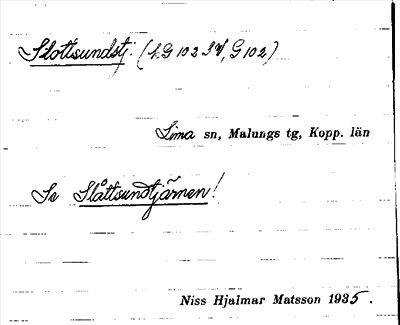 Slottsundstj. (LG 102 SV, G 102)
Lima sn, Malungs tg, Kopp. län
Se Slåttsundtjärnen!
Niss Hjalmar Matsson 1935.